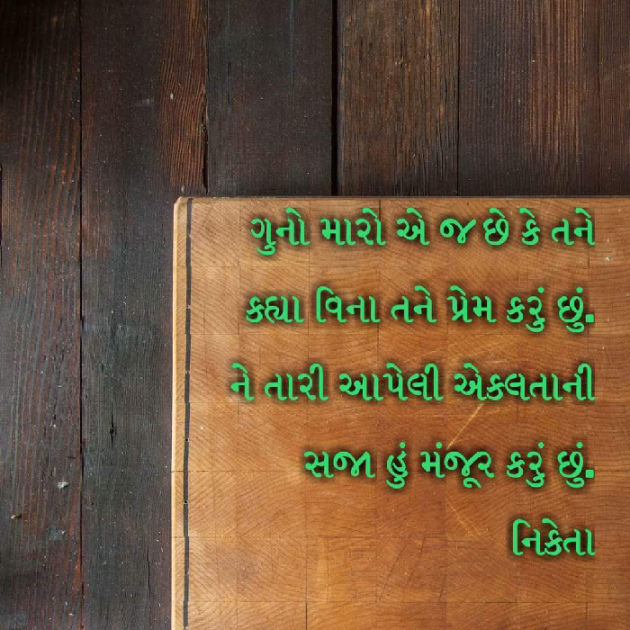 ગુનો મારો એ જ છે કે તને
કહ્યા વિના તને પ્રેમ કરું છું.
ને તારી આપેલી એકલતાની
સજા હું મંજૂર કરું છું.
નિકેતા